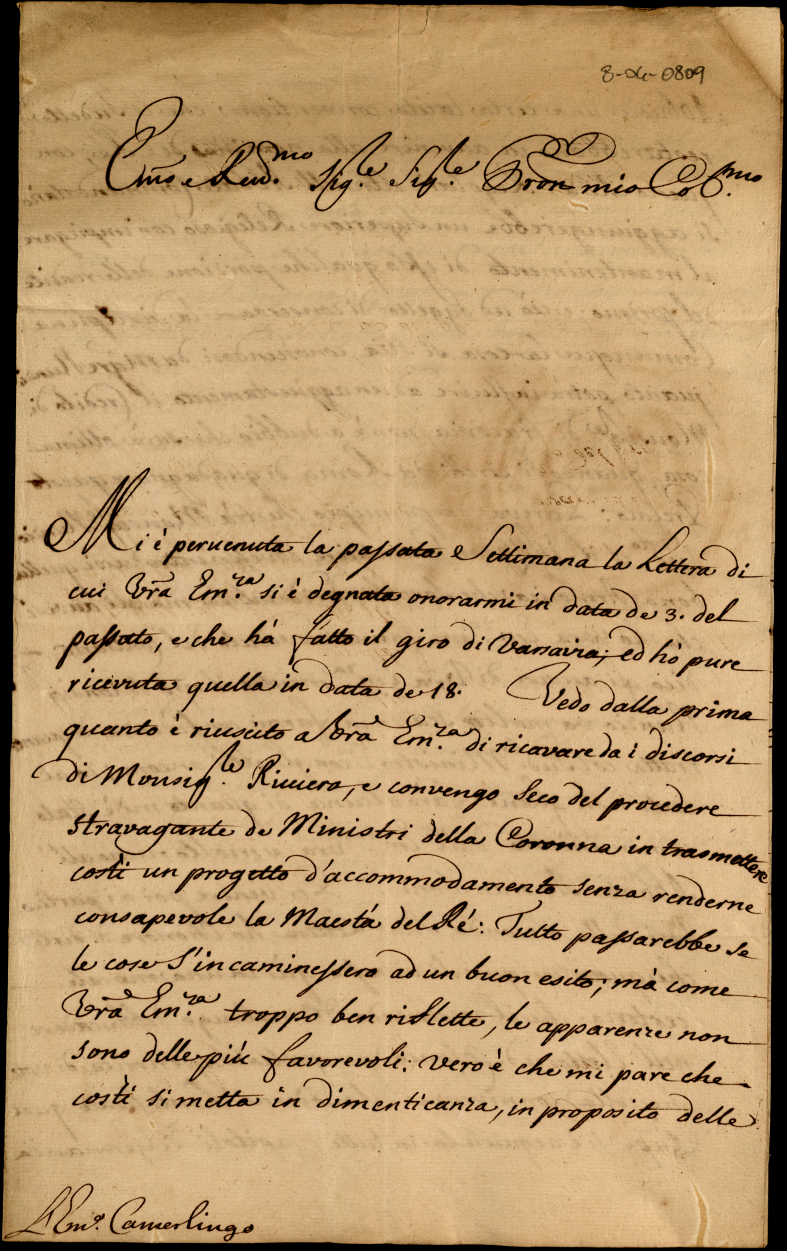 8-XI-0809
Emo e Reud.mo Sig.le Sig.le Pron mio Col.mo
Mi è pervenuta la passata Settimana la Lettera di
cui Vrã Em.za si è degnata onorarmi in data de 3. del
passato, e che hà fatto il giro di Varsavia; ed hò pure
ricevuta quella in data de 18. Vedo dalla prima
quanto è riuscito a Vrã Em.za di ricavare da i discorsi
di Monsig.le Riviera, e convengo Seco del procedere
stravagante de Ministri della Coronna in trasmettere
costì un progetto d'accommodamento senza renderne
consapevole la Maestà del Ré: Tutto passarebbe se
le cose s'incaminessero ad un buon esito; mà come
Vrã Em.za troppo ben riflette, le apparenze non
sono delle più favorevoli; vero è che mi pare che
costì si metta in dimenticanza, in proposito delle
L'Emo. Camerlingo